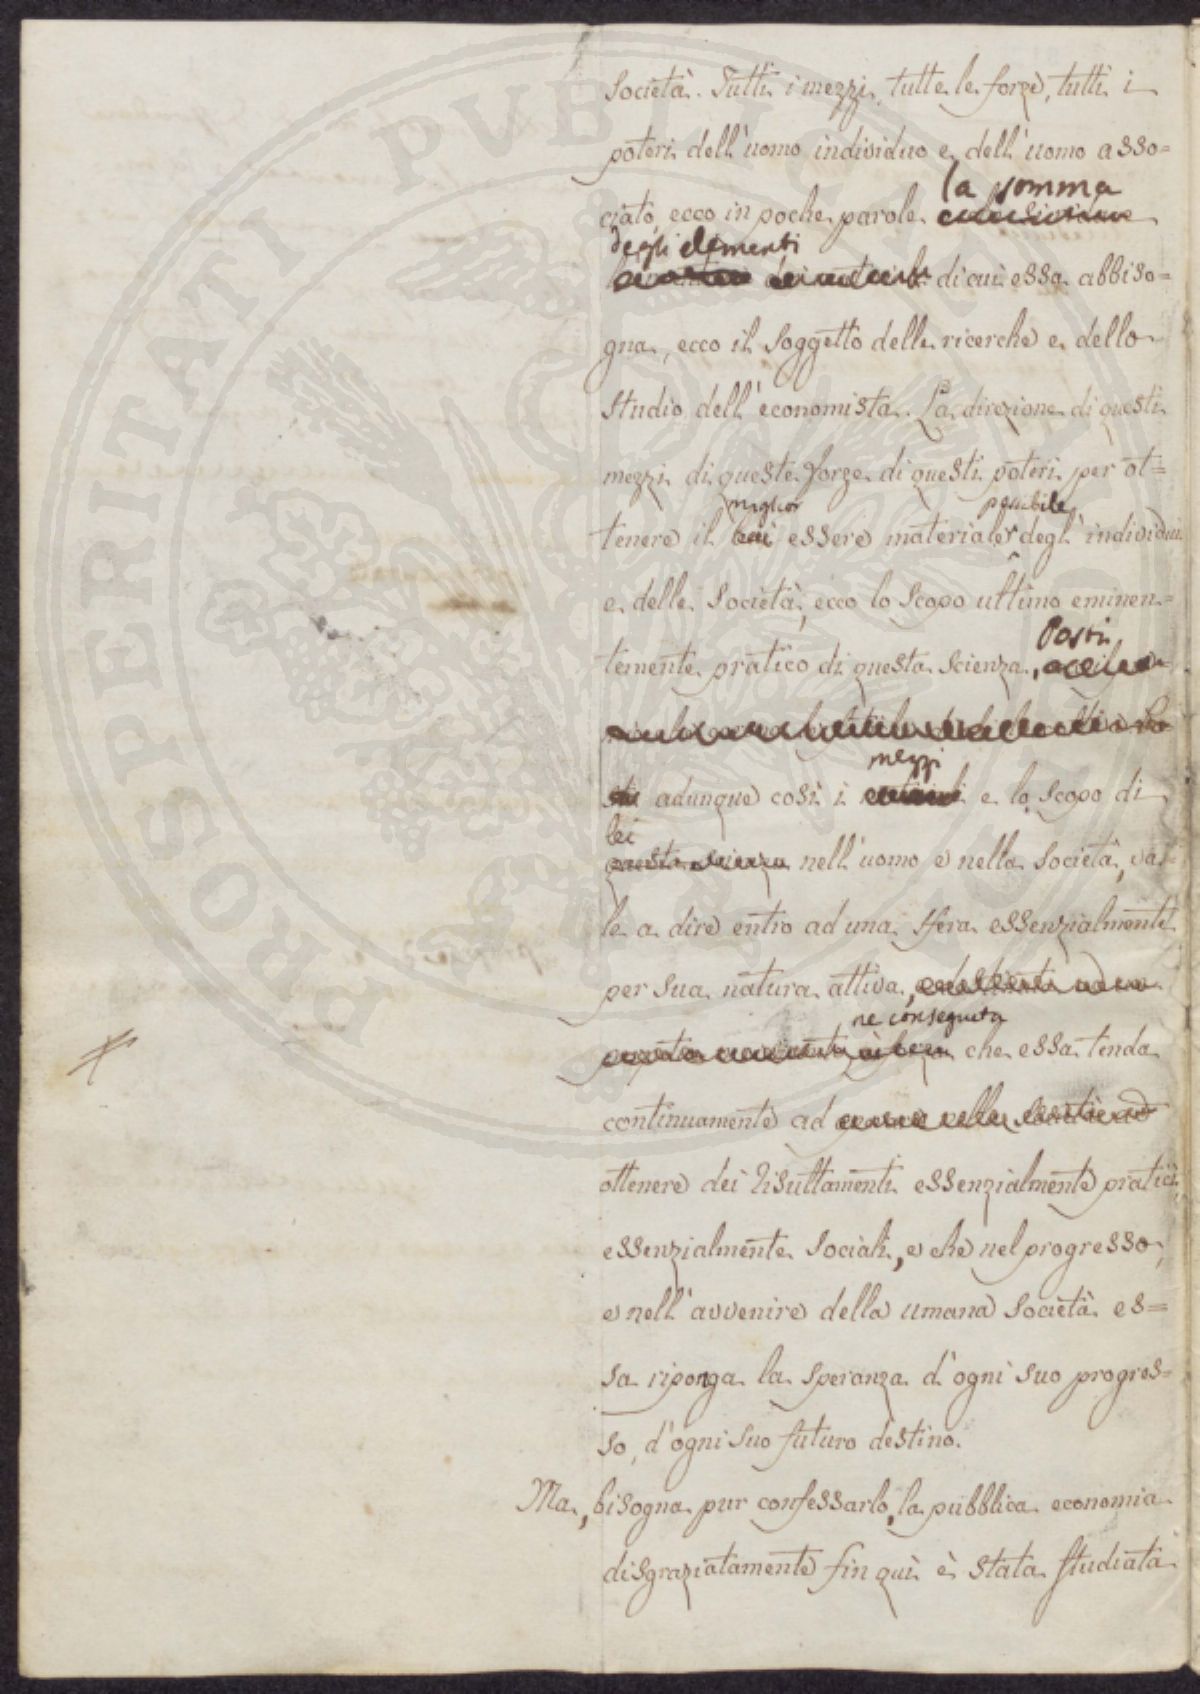 PROSPERITATI PUBLICAE
società. Tutti i mezzi, tutte le forze, tutti i
poteri dell'uomo individuo e dell'uomo asso=
la somma
ciato, ecco in poche parole
degli elementi
di cui essa abbiso=
gna, ecco il soggetto delle ricerche e dello
studio dell'economista. La direzione di questi
mezzi di queste forze di questi poteri per ot=
miglior possibile
tenere il essere materiale degl'individui
e delle società, ecco lo scopo ultimo eminen=
temente pratico di questa scienza,
Posti
mezzi
adunque così i e lo scopo di
lei
questa scienza nell'uomo e nella società, va=
le a dire entro ad una sfera essenzialmente
per sua natura attiva,
ne conseguita
che essa tenda
continuamente ad
ottenere dei risultamenti essenzialmente pratici,
essenzialmente sociali, e che nel progresso,
e nell'avvenire della umana società es=
sa riponga la speranza d'ogni suo progres=
so, d'ogni suo futuro destino.
Ma, bisogna pur confessarlo, la pubblica economia
disgraziatamente fin quì è stata studiata